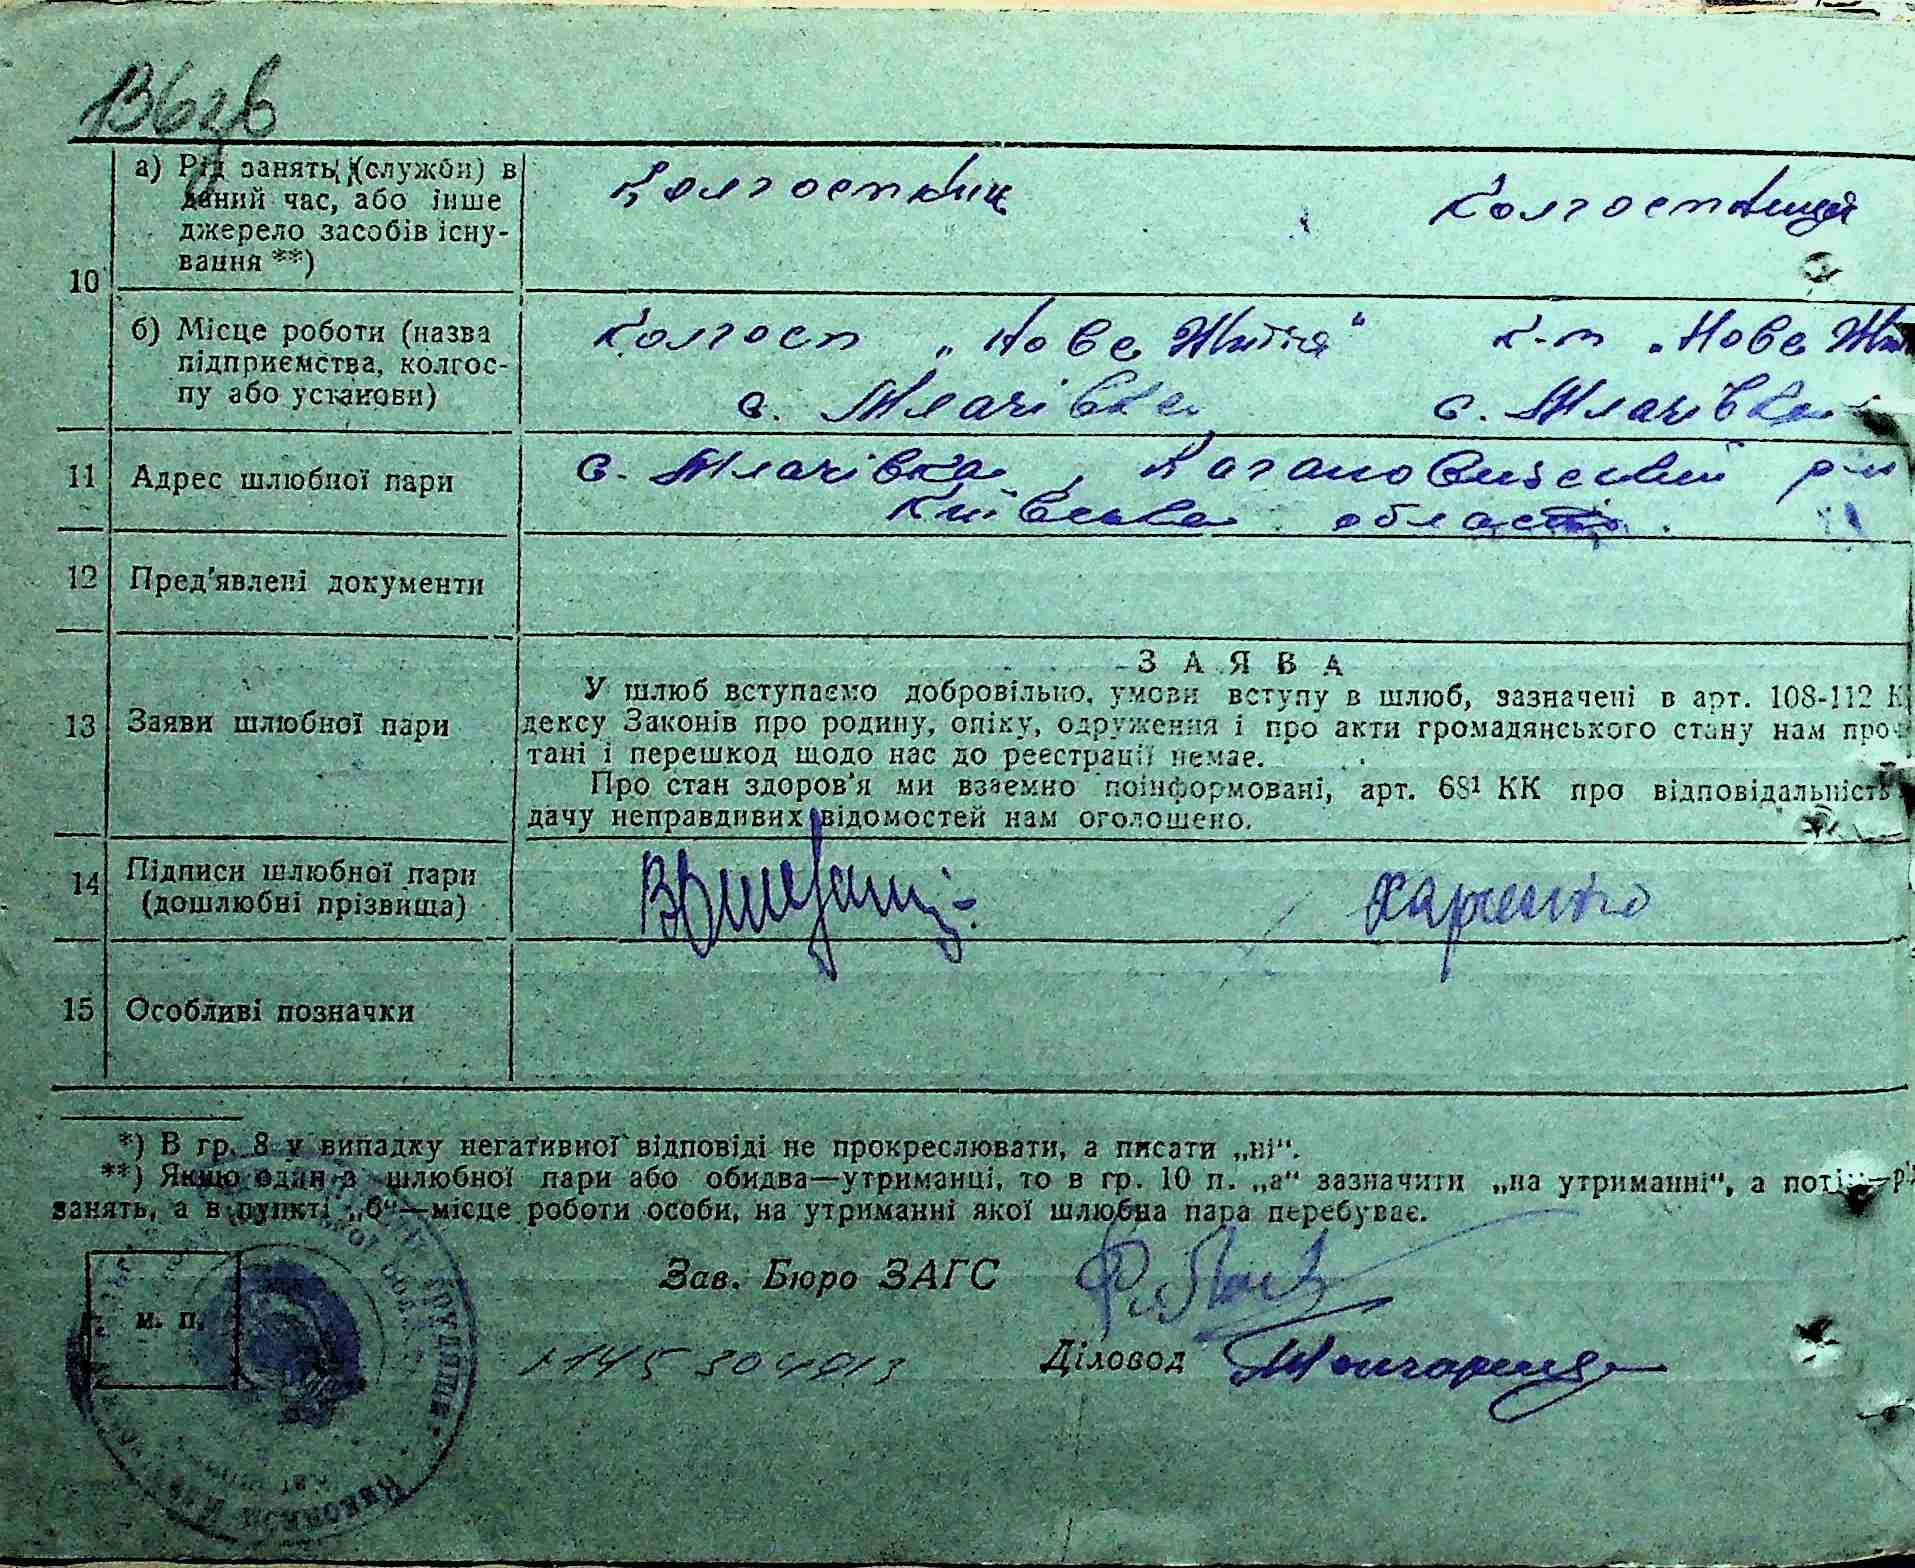 136зв
10
а) Рід занять (службн) в
даний час, або інше
джерело засобів існу-
вання **)
Колгоспник
Колгоспниця
б) Місце роботи (назва
підприємства, колгос-
пу або установи)
Колгосп „Нове Життя“
с. Млачівка
к-п „Нове Жит
с. Млачівка
11
Адрес шлюбної пари
с. Млачівка, Кагановический р-н
Київська область.
12
Пред'явлені документи
13
Заяви шлюбної пари
ЗАЯВА
У шлюб вступаємо добровільно, умови вступу в шлюб, зазначені в арт. 108-112 К
дексу Законів про родину, опіку, одруження і про акти громадянського стану нам проч
тані і перешкод щодо нас до реєстрації немає.
Про стан здоров'я ми взаємно поінформовані, арт. 68¹ КК про відповідальність
дачу неправдивих відомостей нам оголошено.
14
Підписи шлюбної пари
(дошлюбні прізвища)
15
Особливі позначки
*) В гр. 8 у випадку негативної відповіді не прокреслювати, а писати „ні“.
**) Якщо один з шлюбної пари або обидва—утриманці, то в гр. 10 п. „а“ зазначити „на утриманні“, а потім—р
занять, а в пункті „б“—місце роботи особи, на утриманні якої шлюбна пара перебуває.
Зав. Бюро ЗАГС
м. п.
Діловод